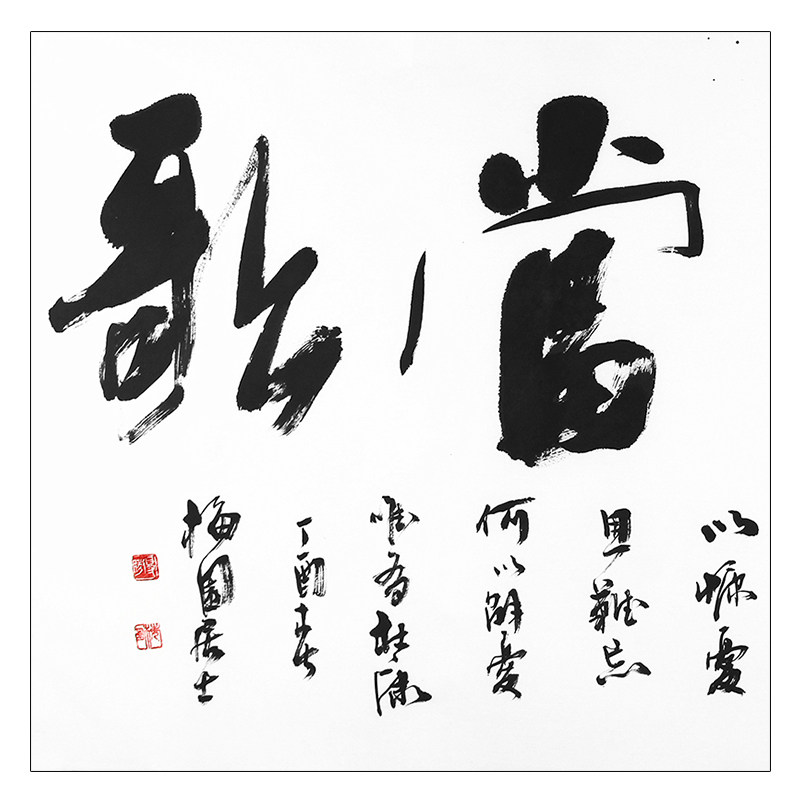 當歌
以慷憂
思難忘
何以解憂
唯有杜康
丁酉春
梅園居士